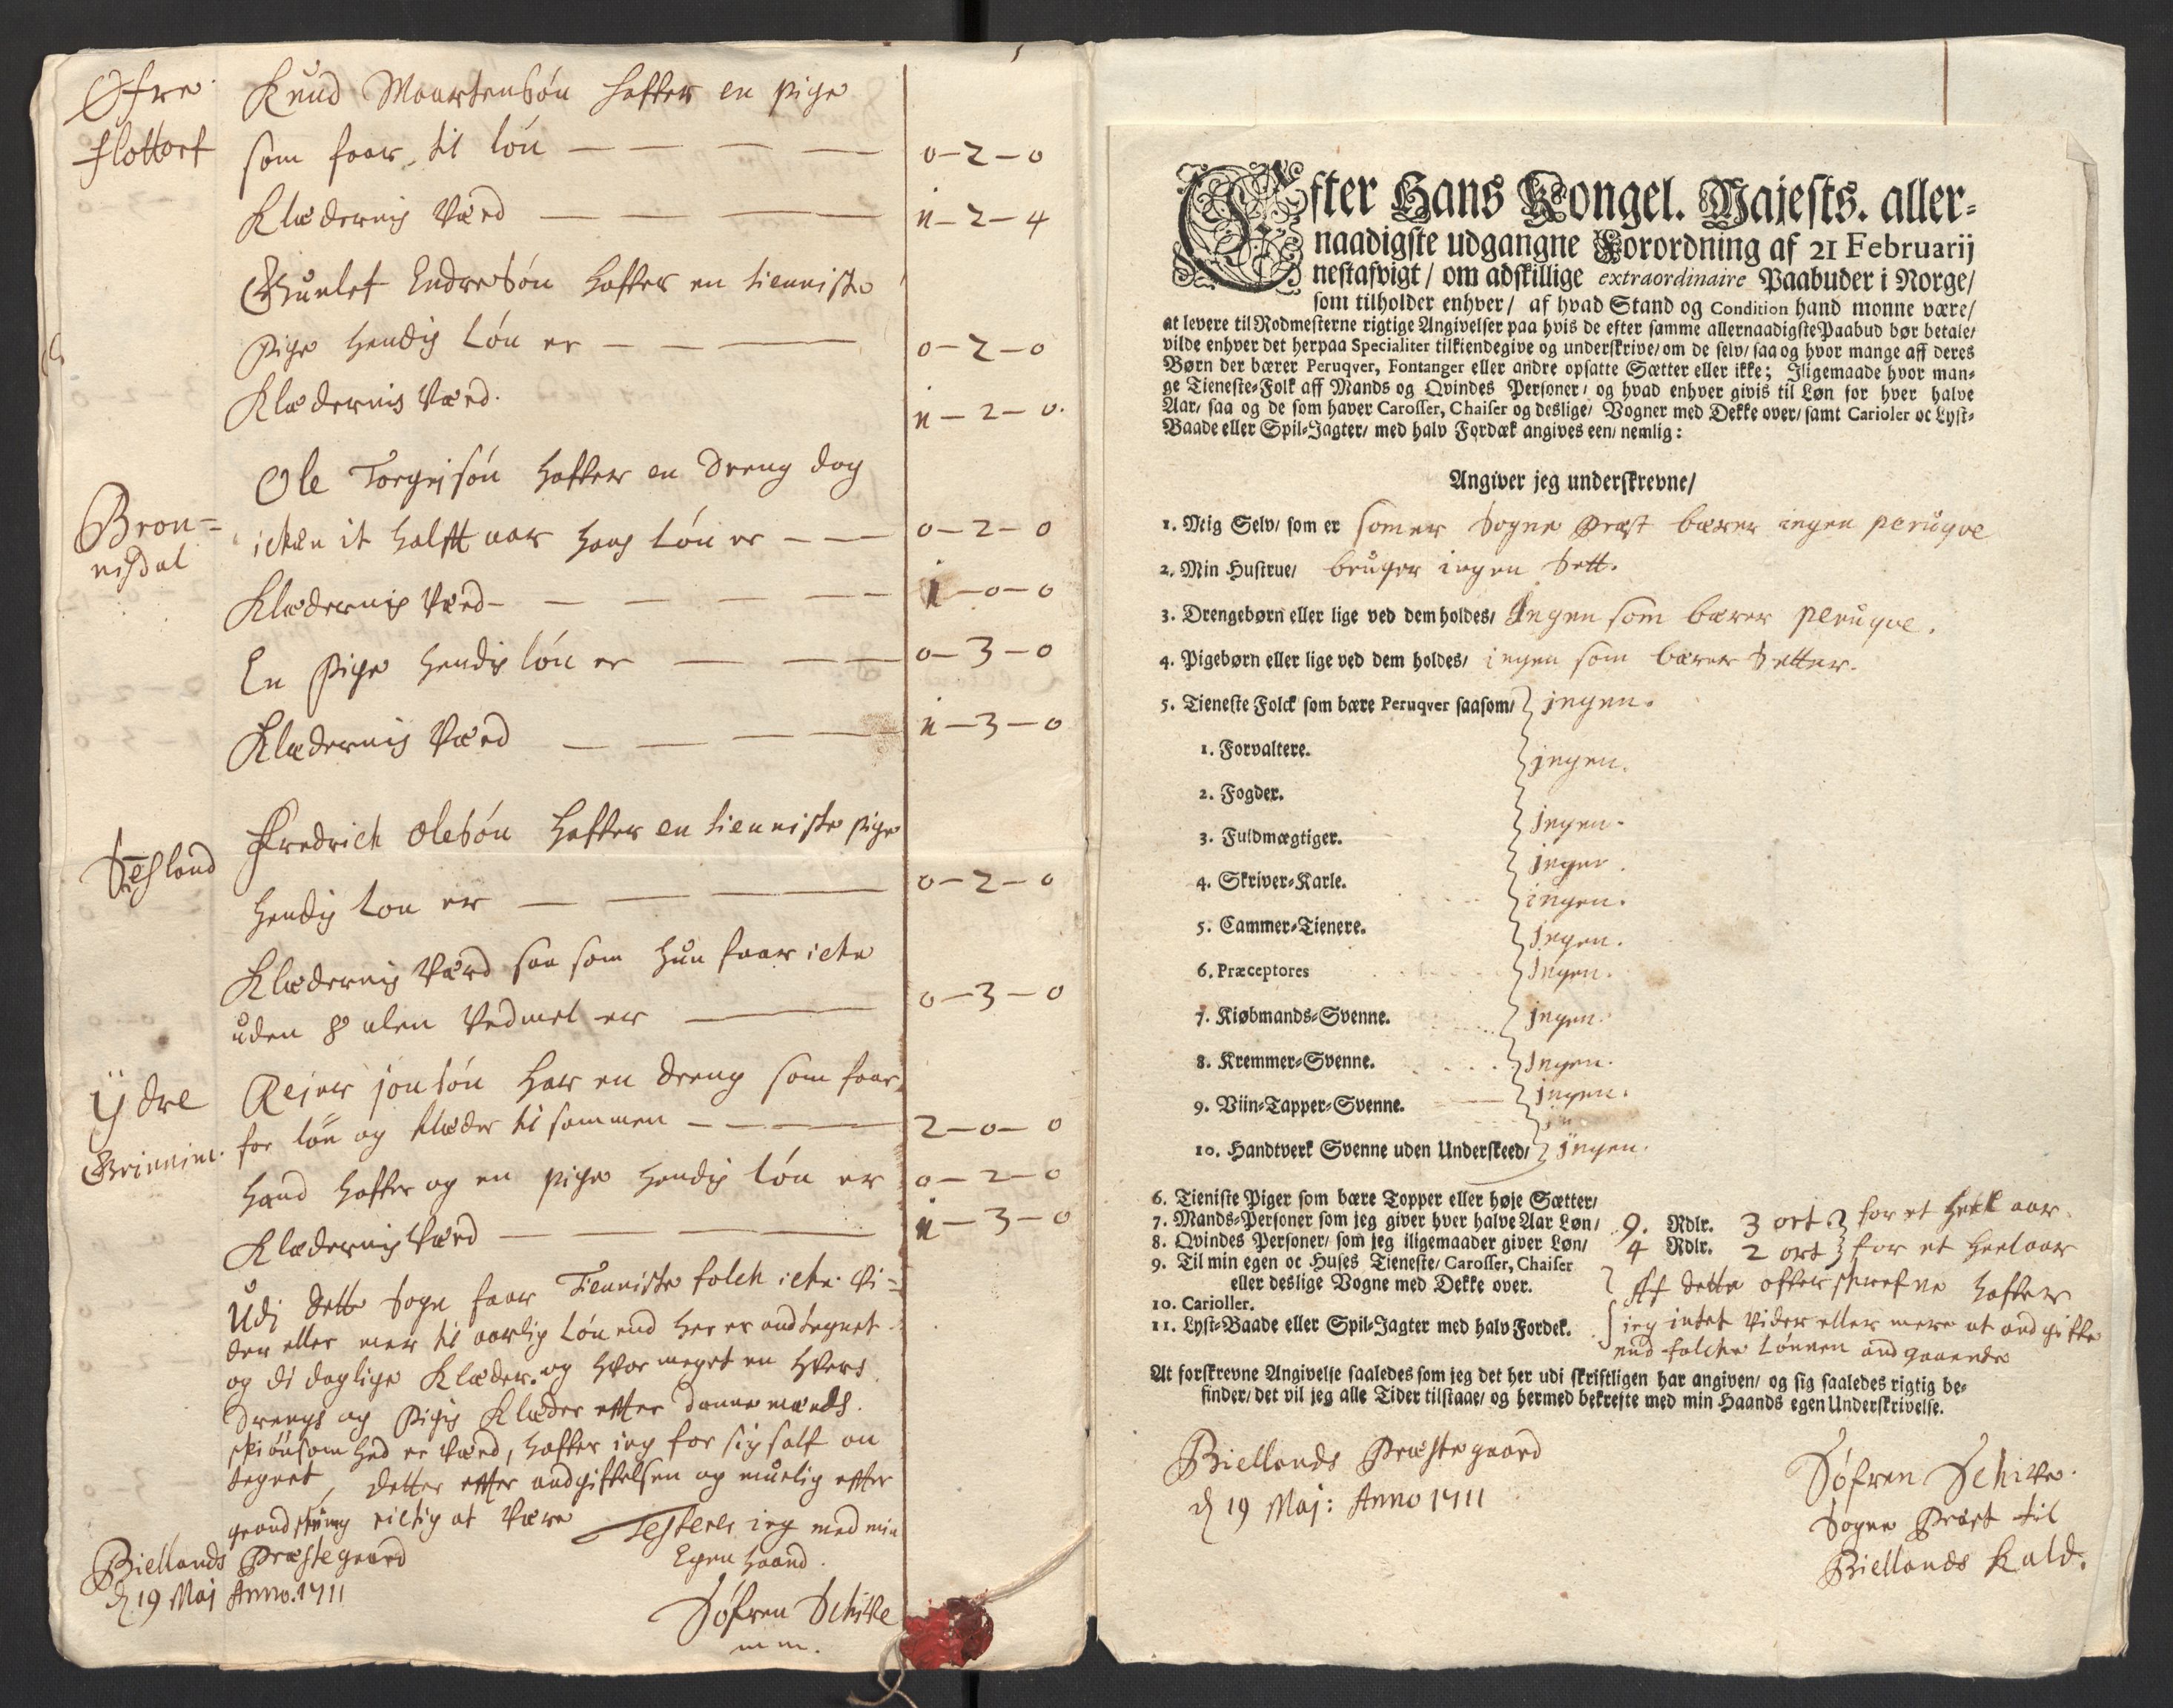 Øfre
Flottorf
Knud Maartensøn hafver en pige
som faar til løn — — — — 0–2–0
Klædernis Værd — — — — 1–2–4
Gunlef Endresøn hafver en tienniste
pige hendis Løn er — — — 0–2–0
Klædernis Værd. 1–2–0.
Bron=
nisdal
Ole Torgisøn hafver en dreng dog
icken it halft aar hans Løn er — — 0–2–0
Klædernis Værd — — — — 1–0–0
En Pige hendis løn er — — — 0–3–0
Klædernis Værd — — — — 1–3–0
Fredrich olesøn hafver en tienniste pige
hendis Løn er — — — 0–2–0
Klædernis Værd saa som hun faar icke
uden 8 alen Vadmel er — 0–3–0
Ÿdre
Rejer jonsøn har en dreng som faar
for løn og klæder til sammen — — — 2–0–0
hand hafver og en pige hendis løn er 0–2–0
Klædernis Værd — — — 1–3–0
Udi dette Sogn faar Tienniste folch icke vi=
der eller mer til aarlig Løn end her er andtegnet
og di daglige Klæder. og hvor meget en hvers
drengs og pigis Klæder effter danne mænds
skiønsom hed er Værd, hafver jeg for sig self an
tegnet, detter effter andgiffvelsen og muelig effter
grandskning rictig at Være Testerer jeg med min
Egen haand.
Biellands Præstegaard
d 19 Maj Anno. 1711
Søfren Schive
m m.
Efter Hans Kongel. Majests. aller-
naadigste udgangne Forordning af 21 Februarij
nestafvigt / om adskillige extraordinaire Paabuder i Norge/
som tilholder enhver / af hvad Stand og Condition hand monne være/
at levere til Rodmesterne rigtige Angivelser paa hvis de efter samme allernaadigste Paabud bør betale/
vilde enhver det herpaa Specialiter tilkiendegive og underskrive/ om de selv/ saa og hvor mange aff deres
Børn der bærer Peruqver, Fontanger eller andre opsatte Sætter eller ikke; Iligemaade hvor man-
ge Tieneste-Folk aff Mands og Qvindes Personer / og hvad enhver givis til Løn for hver halve
Aar/ saa og de som haver Carosser, Chaiser og deslige/ Vogner med Dekke over/ samt Carioler oc Lyst-
Baade eller Spil-Jagter/ med halv Fordæk angives een/ nemlig:
Angiver jeg underskrevne/
1. Mig Selv/ som er som er Sogne Præst bærer ingen peruqve
2. Min Hustrue/ bruger ingen Sett.
3. Drengebørn eller lige ved dem holdes/ Ingen som bærer peruqve.
4. Pigebørn eller lige ved dem holdes/ ingen som bærer Setter.
5. Tieneste Folck som bære Peruqver saasom/ jngen.
1. Forvaltere. jngen.
2. Fogder. Jngen.
3. Fuldmægtiger. jngen.
4. Skriver-Karle. ingen.
5. Cammer-Tienere. Jngen.
6. Præceptores Ingen.
7. Kiøbmands-Svenne. Jngen.
8. Kremmer-Svenne. Jngen.
9. Viin-Tapper-Svenne. Jngen.
10. Handtverk Svenne uden Underskeed/ Jngen.
6. Tieniste Piger som bære Topper eller høje Sætter/
7. Mands-Personer som jeg giver hver halve Aar Løn/ 9. Rdlr. 3 ort for et heel aar.
8. Qvindes Personer/ som jeg iligemaader giver Løn/ 4 Rdlr. 2 ort for et heel aar
9. Til min egen oc Huses Tieneste/ Carosser, Chaiser
eller deslige Vogne med Dekke over.
10. Carioller.
11. Lyst-Baade eller Spil-Jagter med halv Fordek.
Af dette offver skrefne hafver
jeg intet Vider eller mere at andgifve
end folcke Lønnen andgaaende
At forskrevne Angivelse saaledes som jeg det her udi skriftligen har angiven/ og sig saaledes rigtig be-
finder/ det vil jeg alle Tider tilstaae/ og hermed bekrefte med min Haands egen Underskrivelse.
Biellands Præstegaard
d 19 Maj: Anno 1711
Søfren Schive.
Sogne Præst til
Biellands Kald.